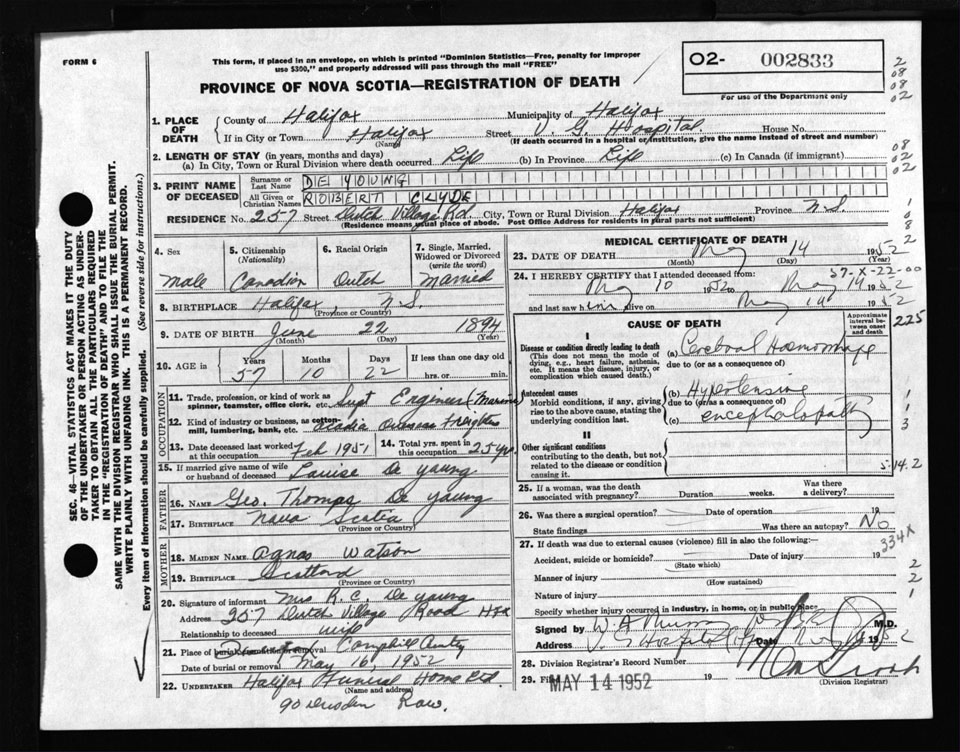 FORM 6
This form, if placed in an envelope, on which is printed "Dominion Statistics—Free, penalty for improper
use $300," and properly addressed will pass through the mail "FREE"
PROVINCE OF NOVA SCOTIA—REGISTRATION OF DEATH
O2- 002833
For use of the Department only
SEC. 46—VITAL STATISTICS ACT MAKES IT THE DUTY
OF THE UNDERTAKER OR PERSON ACTING AS UNDER-
TAKER TO OBTAIN ALL THE PARTICULARS REQUIRED
IN THE "REGISTRATION OF DEATH" AND TO FILE THE
SAME WITH THE DIVISION REGISTRAR WHO SHALL ISSUE THE BURIAL PERMIT.
WRITE PLAINLY WITH UNFADING INK. THIS IS A PERMANENT RECORD.
Every item of Information should be carefully supplied. (See reverse side for instructions.)
1. PLACE OF DEATH
County of Halifax Municipality of Halifax
If in City or Town Halifax Street V. G. Hospital House No.
(Name) (If death occurred in a hospital or institution, give the name instead of street and number)
2. LENGTH OF STAY (in years, months and days)
(a) In City, Town or Rural Division where death occurred Life (b) In Province Life (c) In Canada (if immigrant)
3. PRINT NAME OF DECEASED
Surname or Last Name DE YOUNG
All Given or Christian Names ROBERT CLYDE
RESIDENCE No. 257 Street Dutch Village Rd. City, Town or Rural Division Halifax Province N.S.
(Residence means usual place of abode. Post Office Address for residents in rural parts not sufficient)
4. Sex male
5. Citizenship (Nationality) Canadian
6. Racial Origin Dutch
7. Single, Married, Widowed or Divorced (write the word) Married
8. BIRTHPLACE Halifax, N.S.
(Province or Country)
9. DATE OF BIRTH June 22 1894
(Month) (Day) (Year)
10. AGE in Years 57 Months 10 Days 22 If less than one day old
hrs. or min.
OCCUPATION
11. Trade, profession, or kind of work as
spinner, teamster, office clerk, etc. Supt Engineer (Marine)
12. Kind of industry or business, as cotton-
mill, lumbering, bank, etc. Acadia Overseas Freighters
13. Date deceased last worked at this occupation Feb 1951
14. Total yrs. spent in this occupation 25 yrs.
15. If married give name of wife
or husband of deceased Louise De Young
FATHER
16. NAME Geo. Thomas De Young
17. BIRTHPLACE Nova Scotia
(Province or Country)
MOTHER
18. MAIDEN NAME Agnes Watson
19. BIRTHPLACE Scotland
(Province or Country)
20. Signature of informant Mrs R. C. De Young
Address 257 Dutch Village Road Hfx
Relationship to deceased wife
21. Place of burial, cremation or removal Camphill Cemty
Date of burial or removal May 16, 1952
22. UNDERTAKER Halifax Funeral Home Ltd.
(Name and address)
90 Dresden Row.
MEDICAL CERTIFICATE OF DEATH
23. DATE OF DEATH May 14 1952
(Month) (Day) (Year)
57-X-22-00
24. I HEREBY CERTIFY that I attended deceased from:
May 10 1952 to May 14 1952
and last saw him alive on May 14 1952
CAUSE OF DEATH
Approximate interval between onset and death
225
I
Disease or condition directly leading to death
(This does not mean the mode of dying, e.g., heart failure, asthenia, etc. It means the disease, injury, or complication which caused death.)
(a) Cerebral Haemorrhage
due to (or as a consequence of)
Antecedent causes
Morbid conditions, if any, giving rise to the above cause, stating the underlying condition last.
(b) Hypertensive
due to (or as a consequence of)
encephalopathy
(c)
II
Other significant conditions
contributing to the death, but not related to the disease or condition causing it.
5-14.2
25. If a woman, was the death associated with pregnancy? Duration weeks. Was there a delivery?
26. Was there a surgical operation? Date of operation 19
State findings Was there an autopsy? No
334X
27. If death was due to external causes (violence) fill in also the following:
Accident, suicide or homicide? Date of injury 19
(State which)
Manner of injury
(How sustained)
Nature of injury
Specify whether injury occurred in industry, in home, or in public place
Signed by W. A. Murray M.D.
Address V. G. Hospital Date May 14 1952
28. Division Registrar's Record Number
29. MAY 14 1952 19
(Division Registrar)